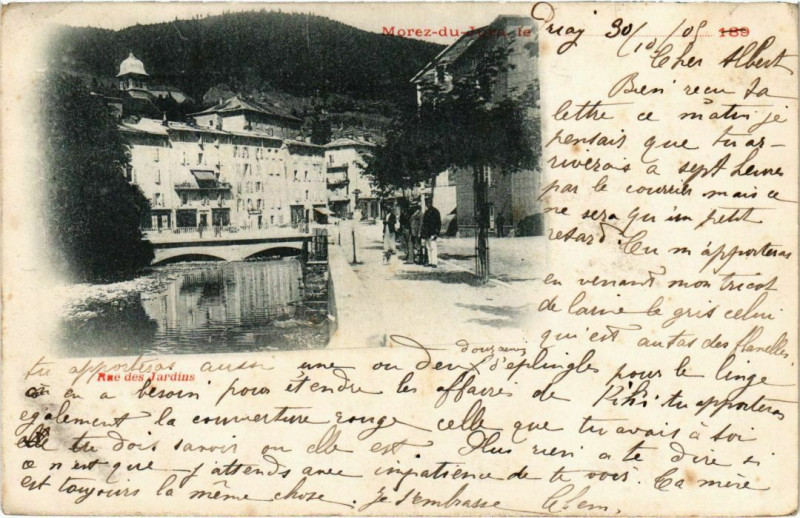 Morez-du-Jura, le 189
30/10/05
Cher Albert
Bien reçu ta
lettre ce matin je
pensais que tu ar-
riverais a sept heures
par le courrier mais ce
ne sera qu'un petit
retard. Tu m'apporteras
en venant mon tricot
de laine le gris celui
qui est au tas des flanelles
tu apporteras aussi une ou deux douzaines d'épingles pour le linge
on en a besoin pour étendre les affaires de Kiki tu apporteras
Rue des Jardins
également la couverture rouge celle que tu avais à toi
tu dois savoir ou elle est. Plus rien a te dire si
ce n'est que j'attends avec impatience de te voir. Ta mère
est toujours la même chose. Je t'embrasse